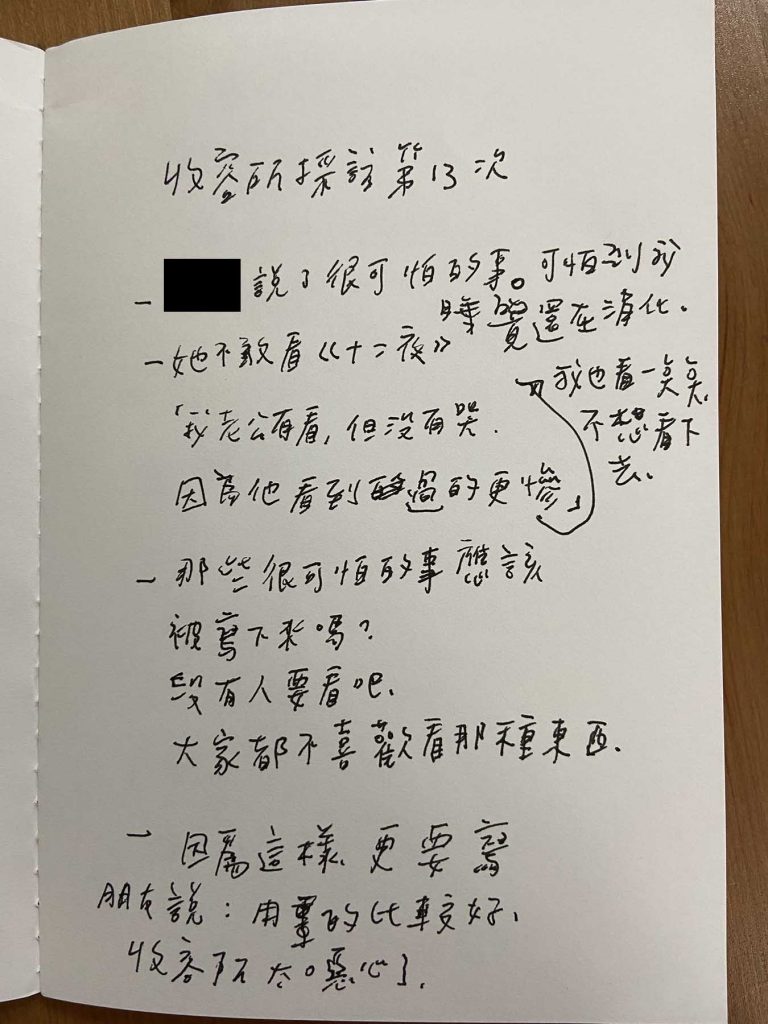 收容所採訪第13次
- 說了很可怕的事。可怕到我
睡覺還在消化。
- 她不敢看《十二夜》
「我老公有看,但沒有哭.
因為他看到過的更慘」
我也看一点点.
不想看下
去.
- 那些很可怕的事應該
被寫下來嗎?
沒有人要看吧.
大家都不喜歡看那種東西.
- 因為這樣、更要寫
朋友說:用畫的比較好.
收容所太噁心了.